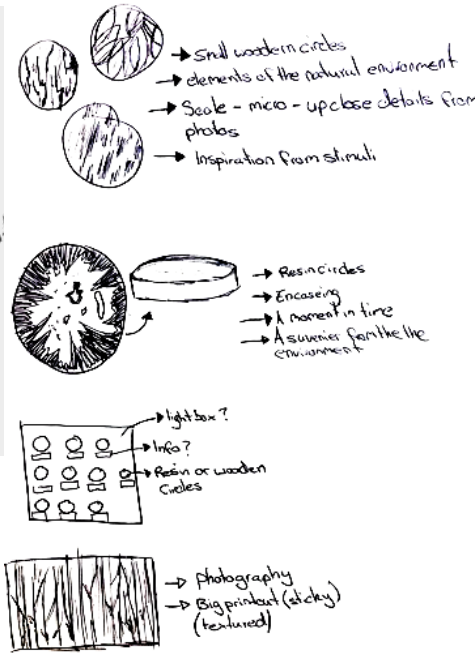 Small wooden circles
elements of the natural environment
Scale - micro - up close details from
photos
Inspiration from stimuli
Resin circles
Encaseing
A moment in time
A suvenier from the the
environment
lightbox?
Info?
Resin or wooden
Circles
Photography
Big printout (sticky)
(textured)